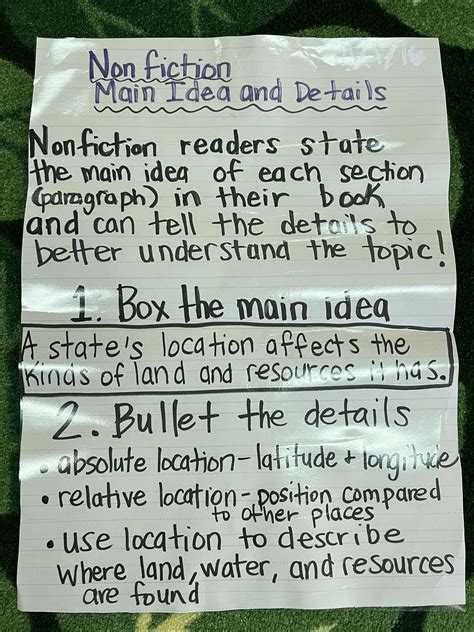 Nonfiction
Main Idea and Details
Nonfiction readers state
the main idea of each section
(paragraph) in their book
and can tell the details to
better understand the topic!
1. Box the main idea
A state's location affects the
kinds of land and resources it has.
2. Bullet the details
• absolute location - latitude + longitude
• relative location - position compared
to other places
• use location to describe
where land, water, and resources
are found